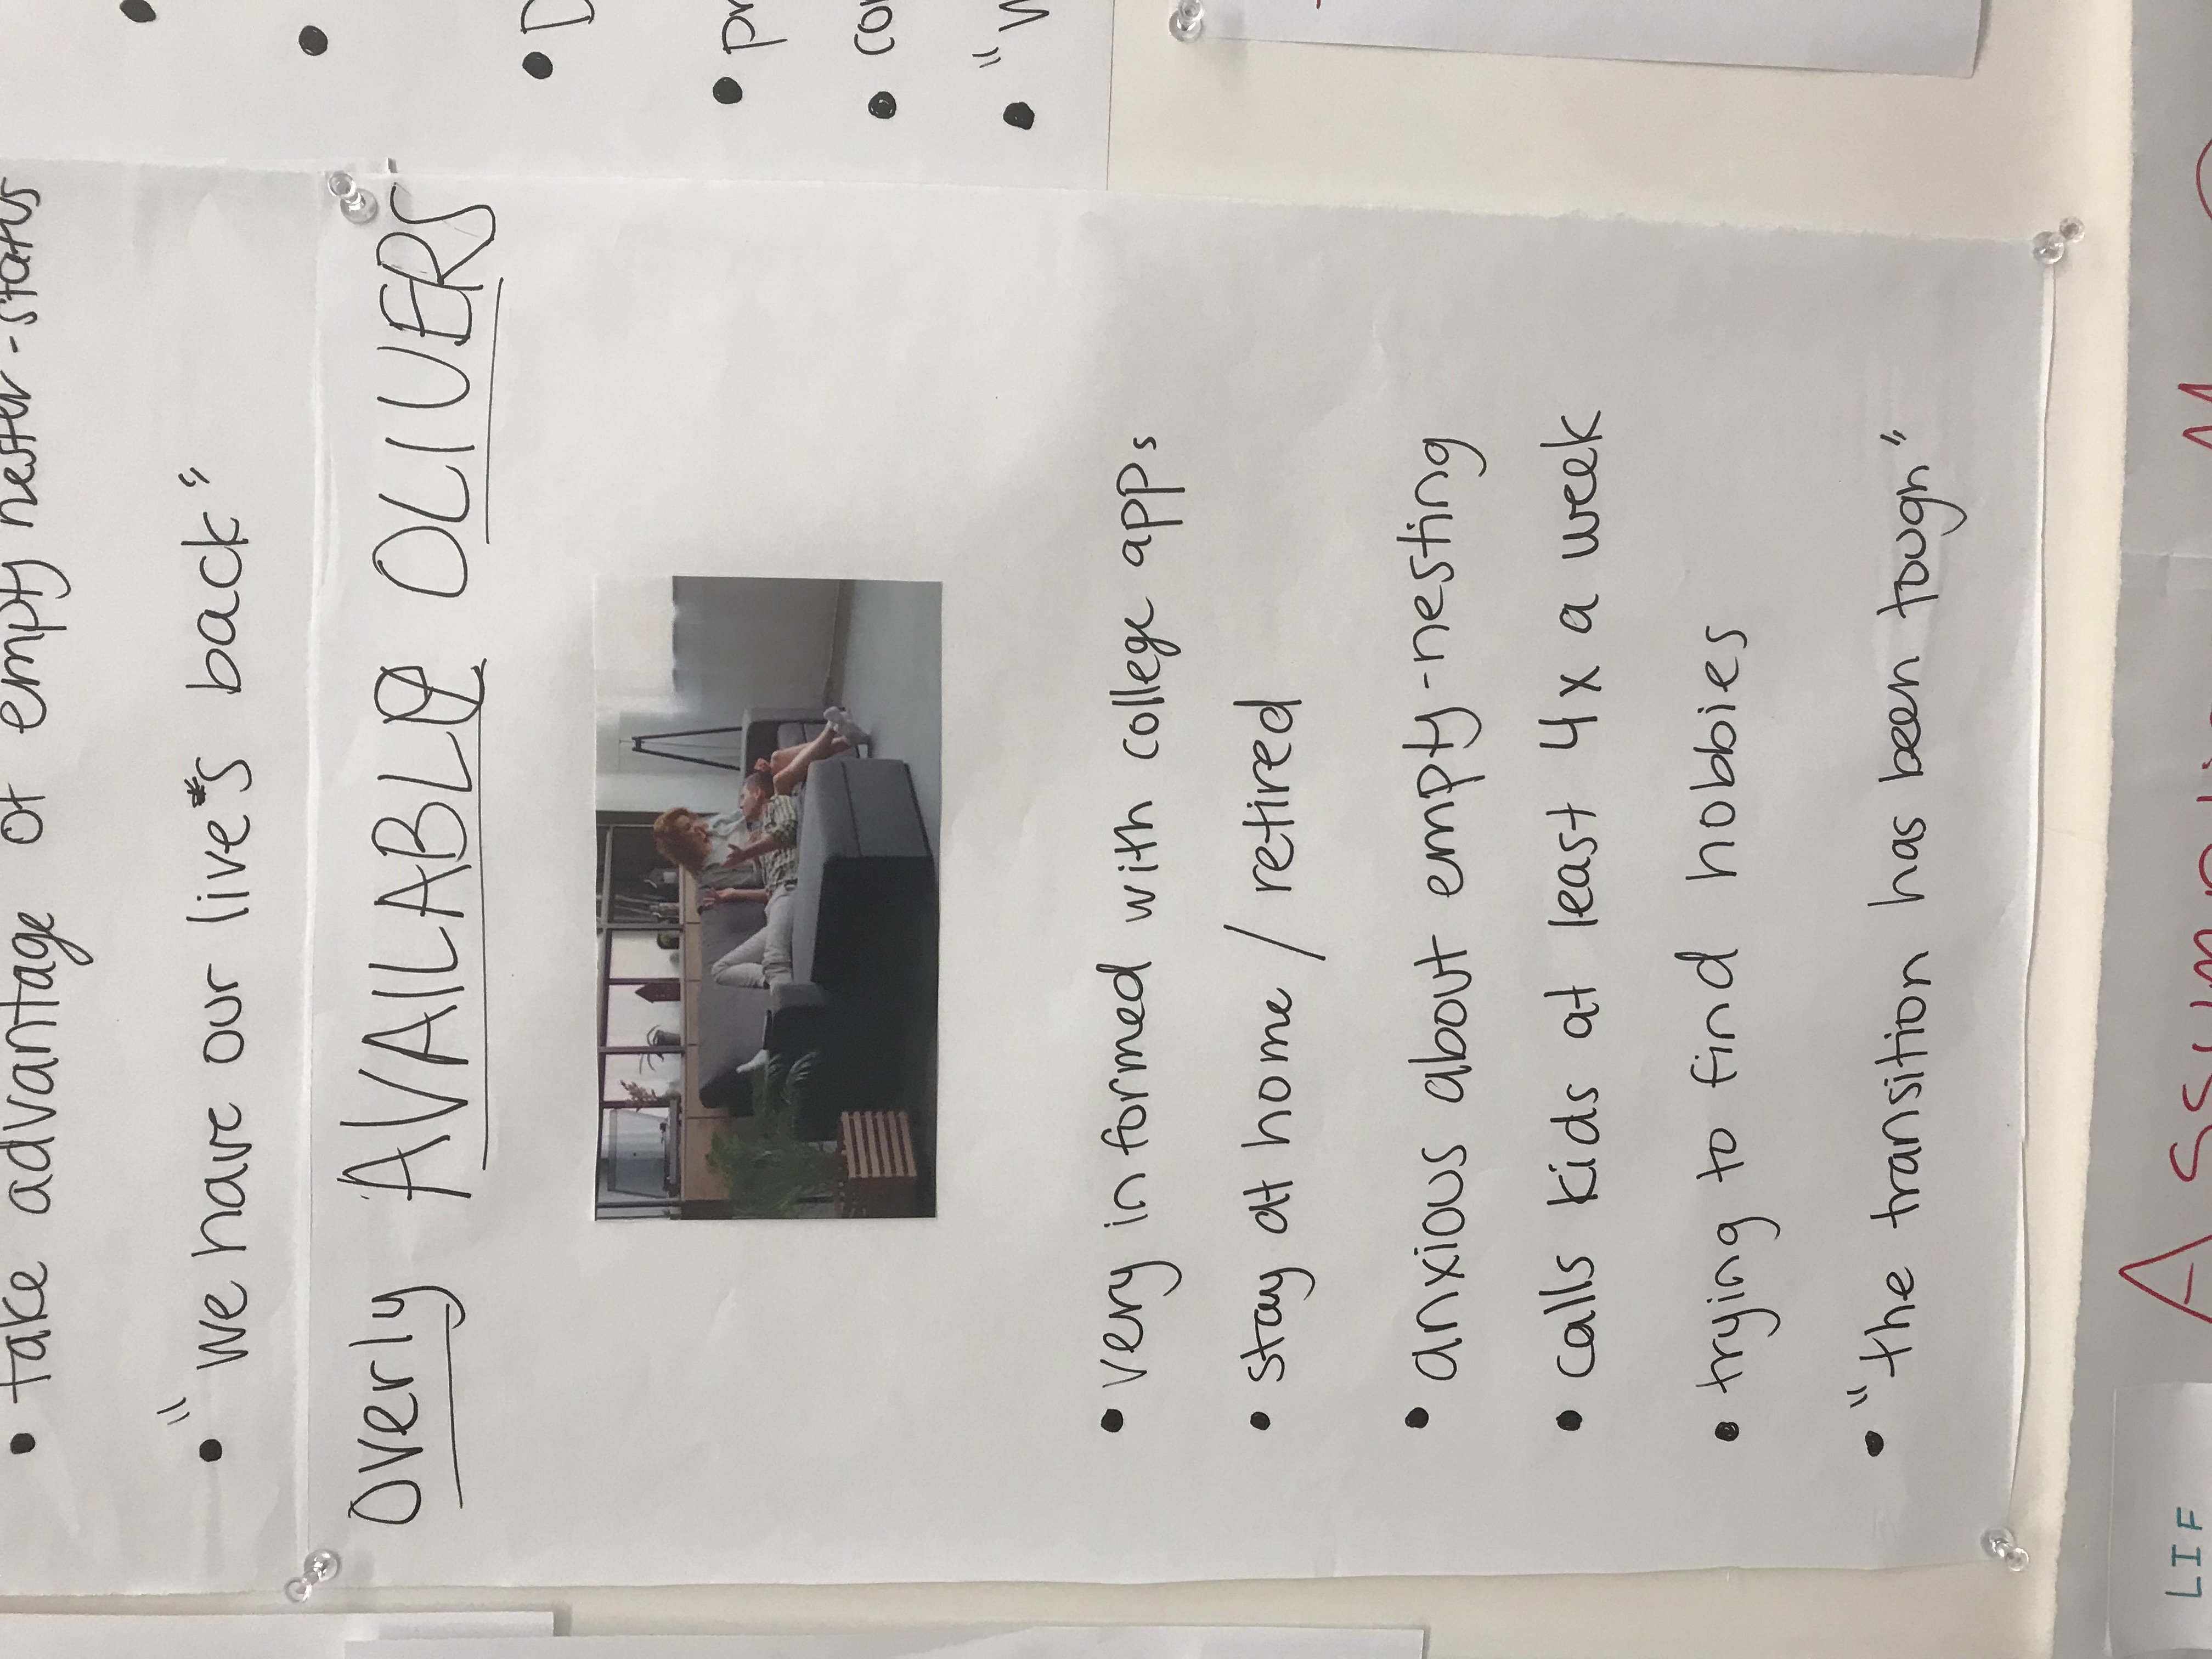 • take advantage of empty nester-status
• "we have our live's back"
Overly AVAILABLE OLIVERS
• very informed with college apps
• stay at home / retired
• anxious about empty-nesting
• calls kids at least 4x a week
• trying to find hobbies
• "the transition has been tough"
LIF